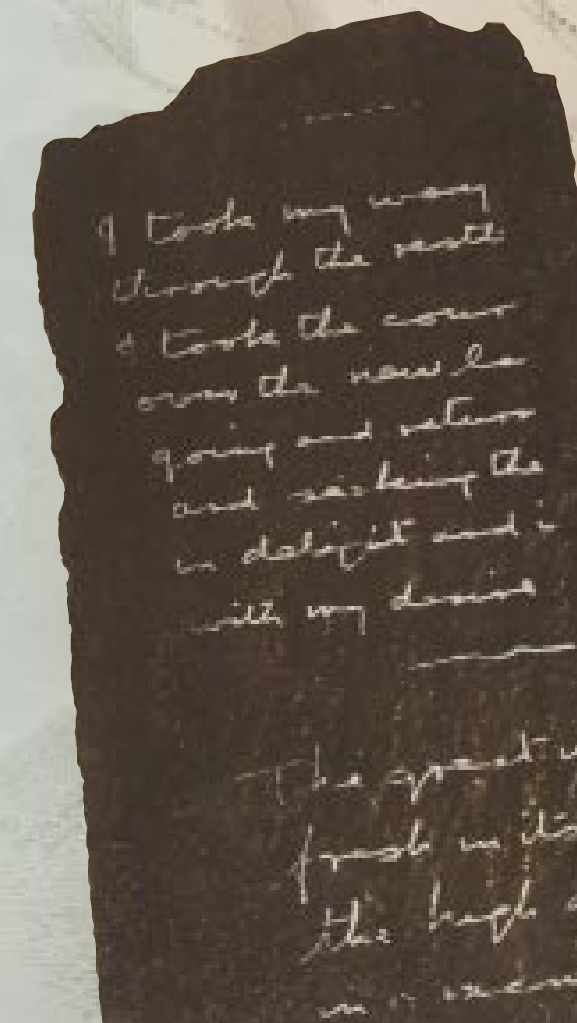 I took my way
through the
I took the
over the new
going and return
and seeking the
in delight and i
with my desire
The great
fresh in its
the high
in